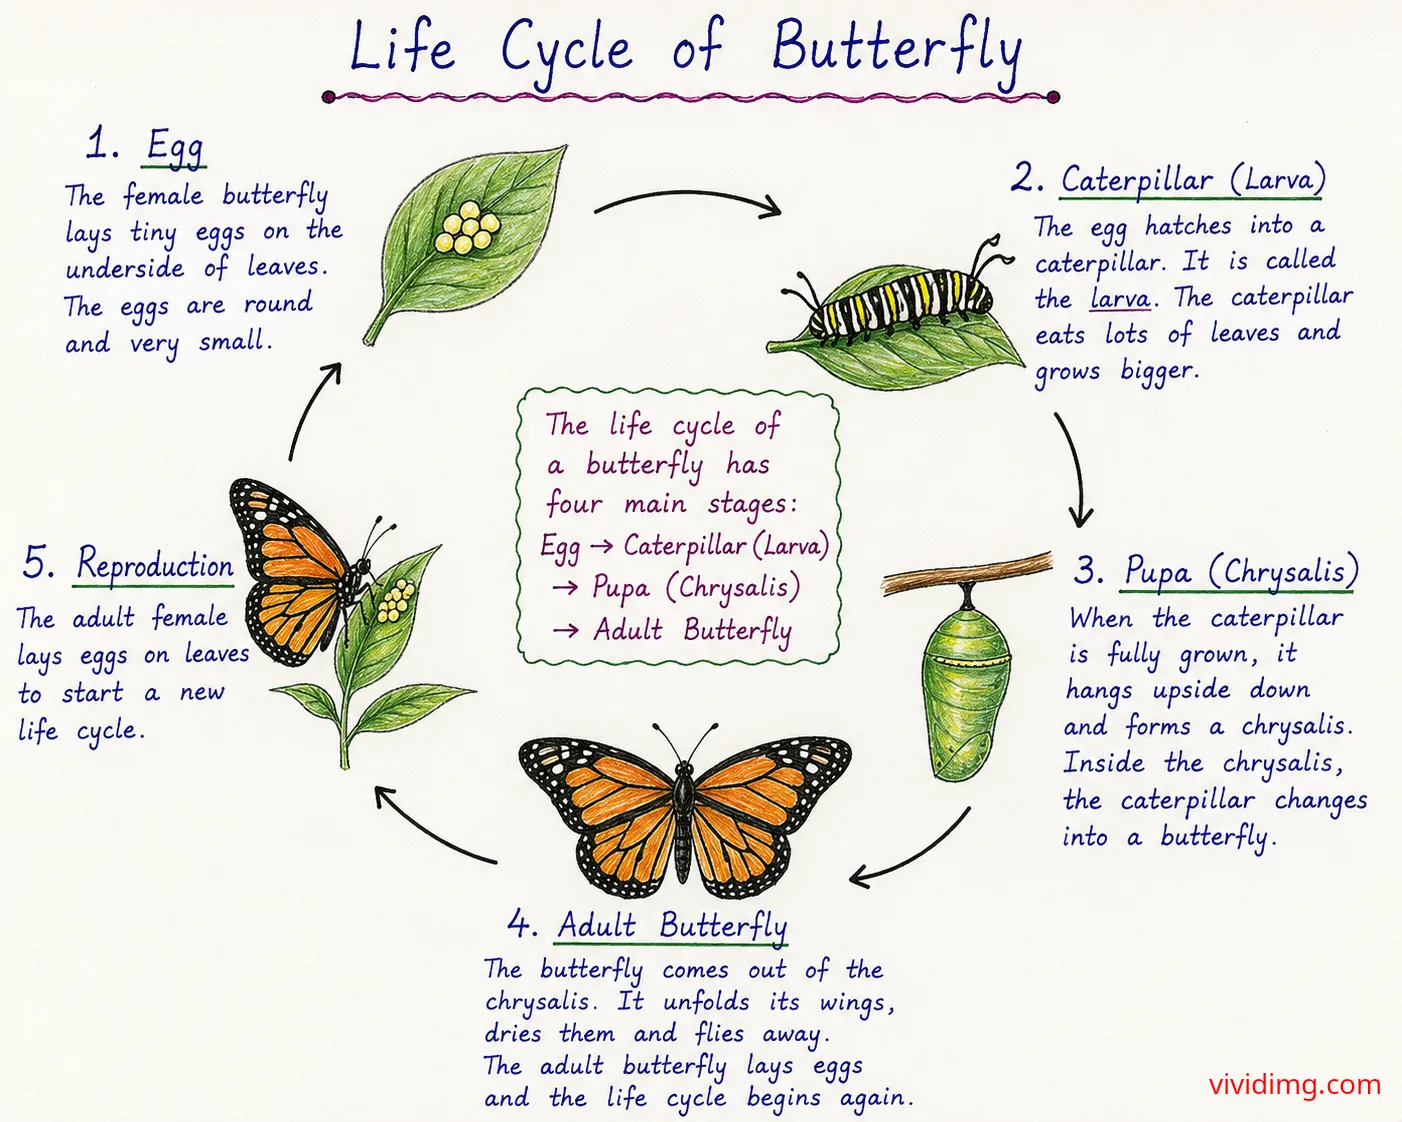 Life Cycle of Butterfly
1. Egg
The female butterfly
lays tiny eggs on the
underside of leaves.
The eggs are round
and very small.
2. Caterpillar (Larva)
The egg hatches into a
caterpillar. It is called
the larva. The caterpillar
eats lots of leaves and
grows bigger.
The life cycle of
a butterfly has
four main stages:
Egg → Caterpillar (Larva)
→ Pupa (Chrysalis)
→ Adult Butterfly
3. Pupa (Chrysalis)
When the caterpillar
is fully grown, it
hangs upside down
and forms a chrysalis.
Inside the chrysalis,
the caterpillar changes
into a butterfly.
4. Adult Butterfly
The butterfly comes out of the
chrysalis. It unfolds its wings,
dries them and flies away.
The adult butterfly lays eggs
and the life cycle begins again.
5. Reproduction
The adult female
lays eggs on leaves
to start a new
life cycle.
vividimg.com